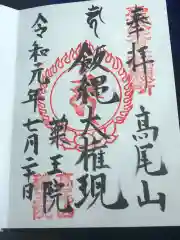 奉拝
高尾山
飯縄大権現
薬王院
令和元年七月二十日